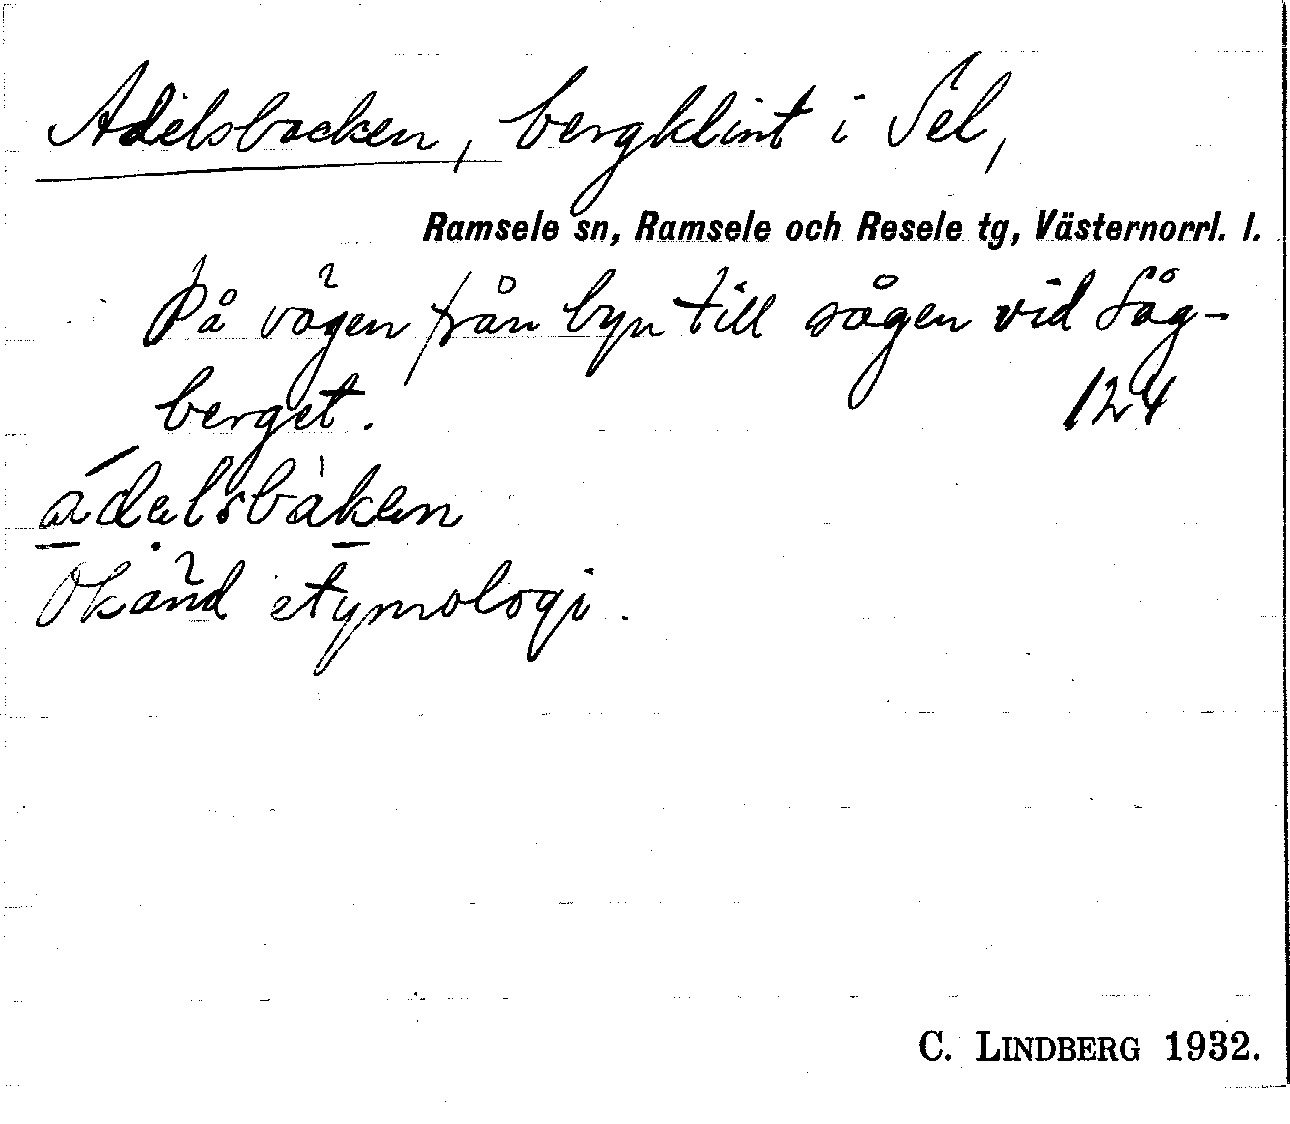 Adelsbacken, bergklint i Sel,
Ramsele sn, Ramsele och Resele tg, Västernorrl. l.
På vägen från byn till sågen vid Såg-
berget. 124
ádalsbàkan
Okänd etymologi.
C. LINDBERG 1932.